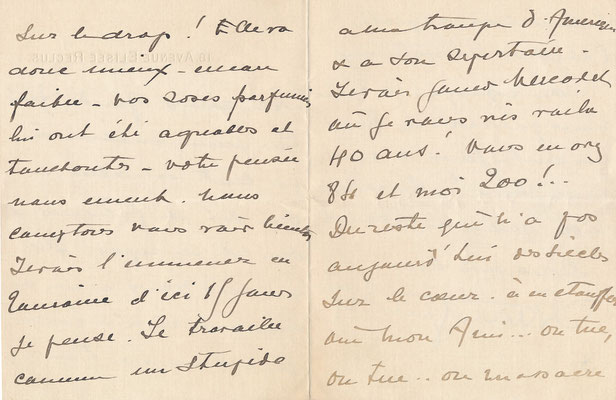 sur le drap ! Elle va
donc mieux - encore
faible - vos roses parfumées
lui ont été agréables et
touchantes - votre pensée
nous émeut. Nous
comptons vous voir bientôt
Je vais l'emmener en
Touraine d'ici 15 jours
je pense. Je travaille
comme un stupide
a ma troupe d'Amérique
& a son repertoire -
Je vais jouer Mercadet
où je vous vis voilà
40 ans ! Vous en avez
84 et moi 200 !..
Du reste qui n'a pas
aujourd'hui des siècles
sur le cœur.
mon Ami... on tue,
on tue.. on massacre
10 AVENUE ELISÉE RECLUS